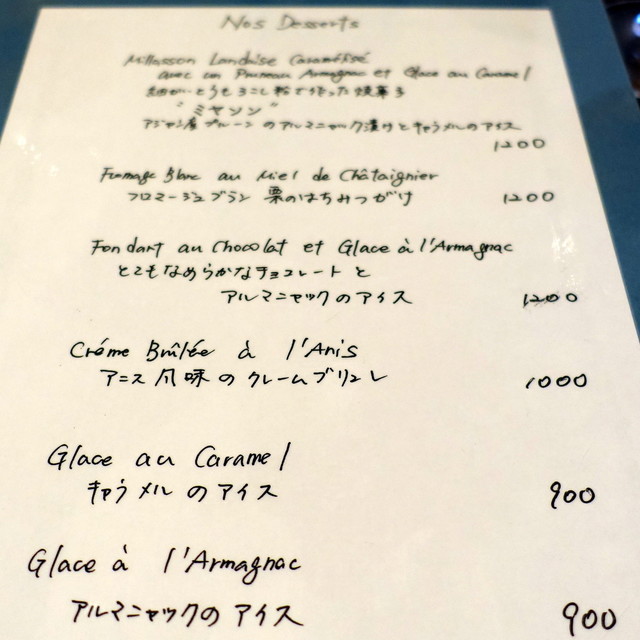 Nos Desserts
Millasson Landaise Caramélisé
avec un Pruneau Armagnac et Glace au Caramel
細かいとうもろこし粉で作った焼菓子
"ミヤソン"
アジャン産プルーンのアルマニャック漬けとキャラメルのアイス
1200
Fromage Blanc au Miel de Châtaignier
フロマージュブラン 栗のはちみつがけ 1200
Fondant au Chocolat et Glace à l'Armagnac
とてもなめらかなチョコレートと
アルマニャックのアイス 1200
Créme Brûlée à l'Anis
アニス風味のクレームブリュレ 1000
Glace au Caramel
キャラメルのアイス 900
Glace à l'Armagnac
アルマニャックのアイス 900